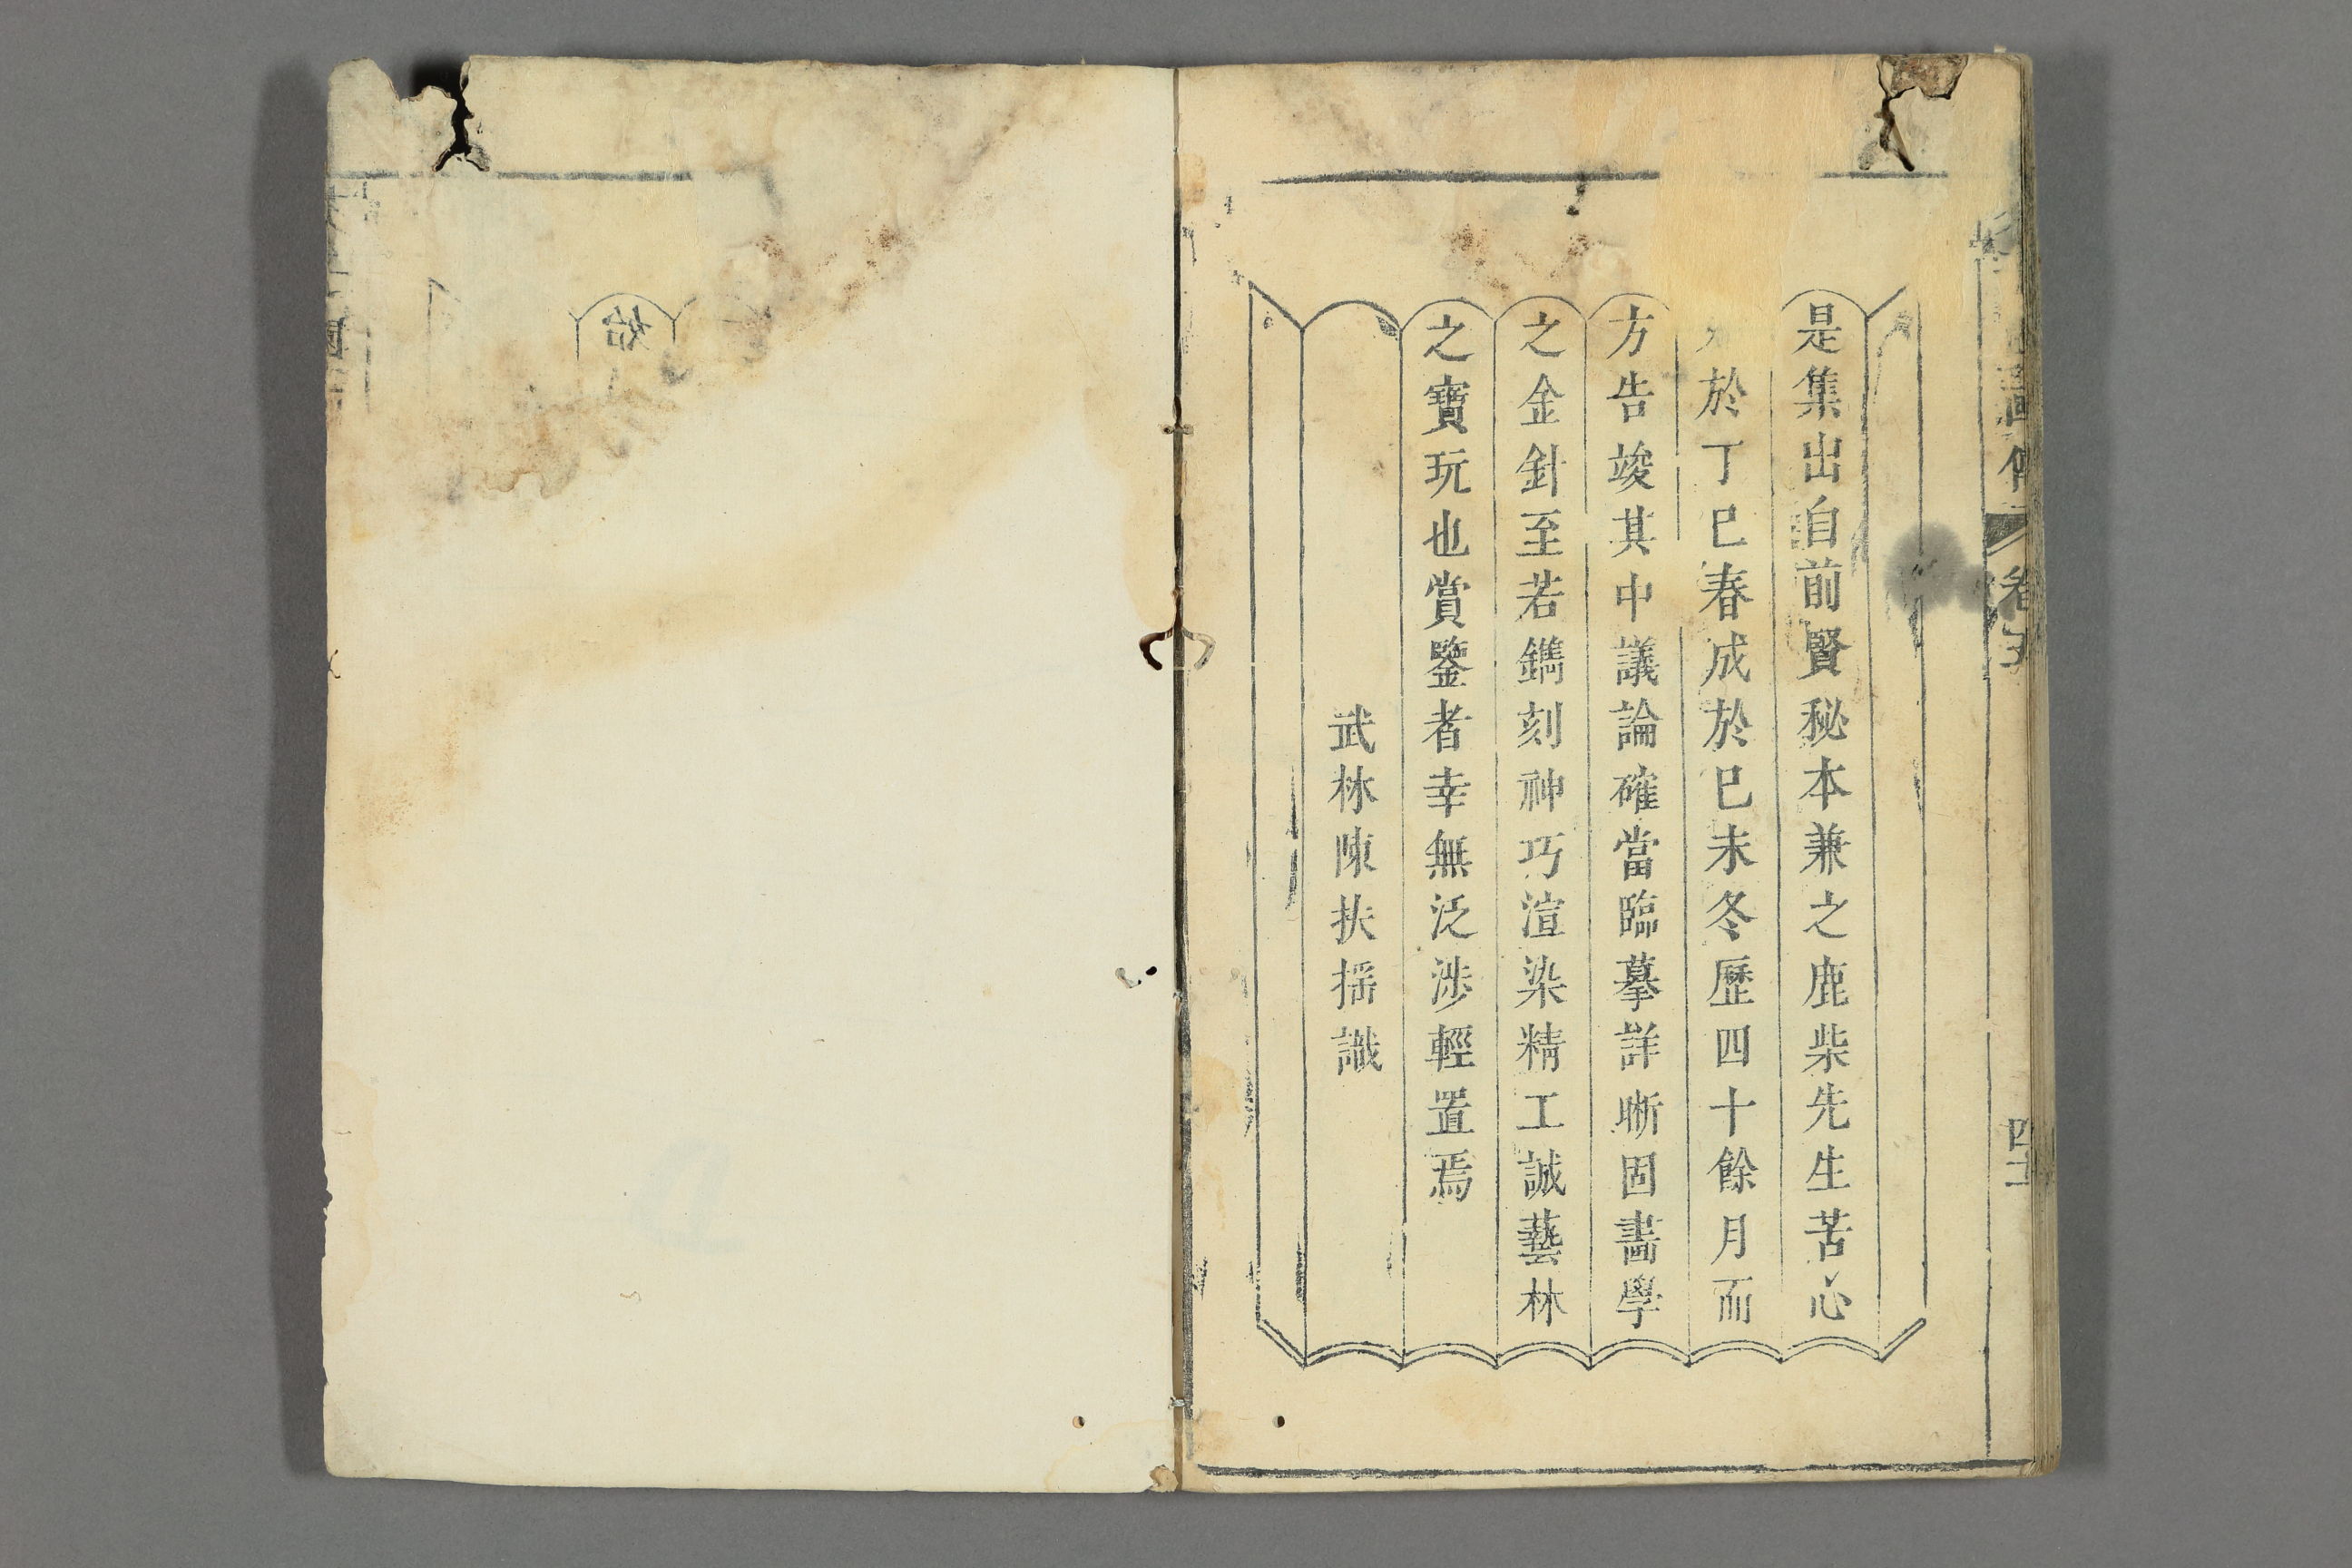 畫傳 卷五 四十
是集出自前賢秘本兼之鹿柴先生苦心
於丁巳春成於巳未冬歷四十餘月而
方告竣其中議論確當臨摹詳晰固畫學
之金針至若鐫刻神巧渲染精工誠藝林
之寶玩也賞鑒者幸無泛涉輕置焉
武林陳扶搖識
始